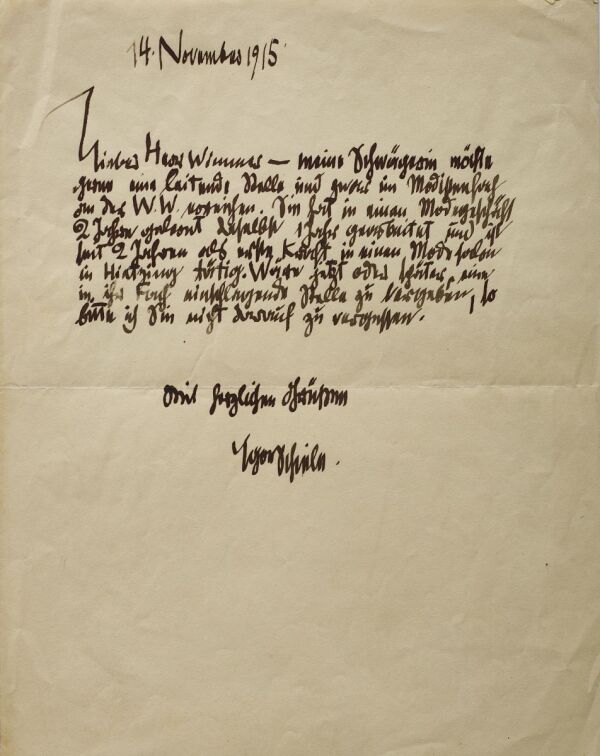 14. November 1915.
Lieber Herr Wimmer — meine Schwägerin möchte
gerne eine leitende Stelle und zwar im Modistenfach
an der W.W. erreichen. Sie hat in einem Modegeschäft
2 Jahre gelernt daselbst 1 Jahr gearbeitet und ist
seit 2 Jahren als erste Kraft in einem Modesalon
in Hietzing tätig. Wäre jetzt oder später, eine
in ihr Fach einschlagende Stelle zu vergeben, so
bitte ich Sie nicht darauf zu vergessen.
Mit herzlichen Grüßen
Egon Schiele.